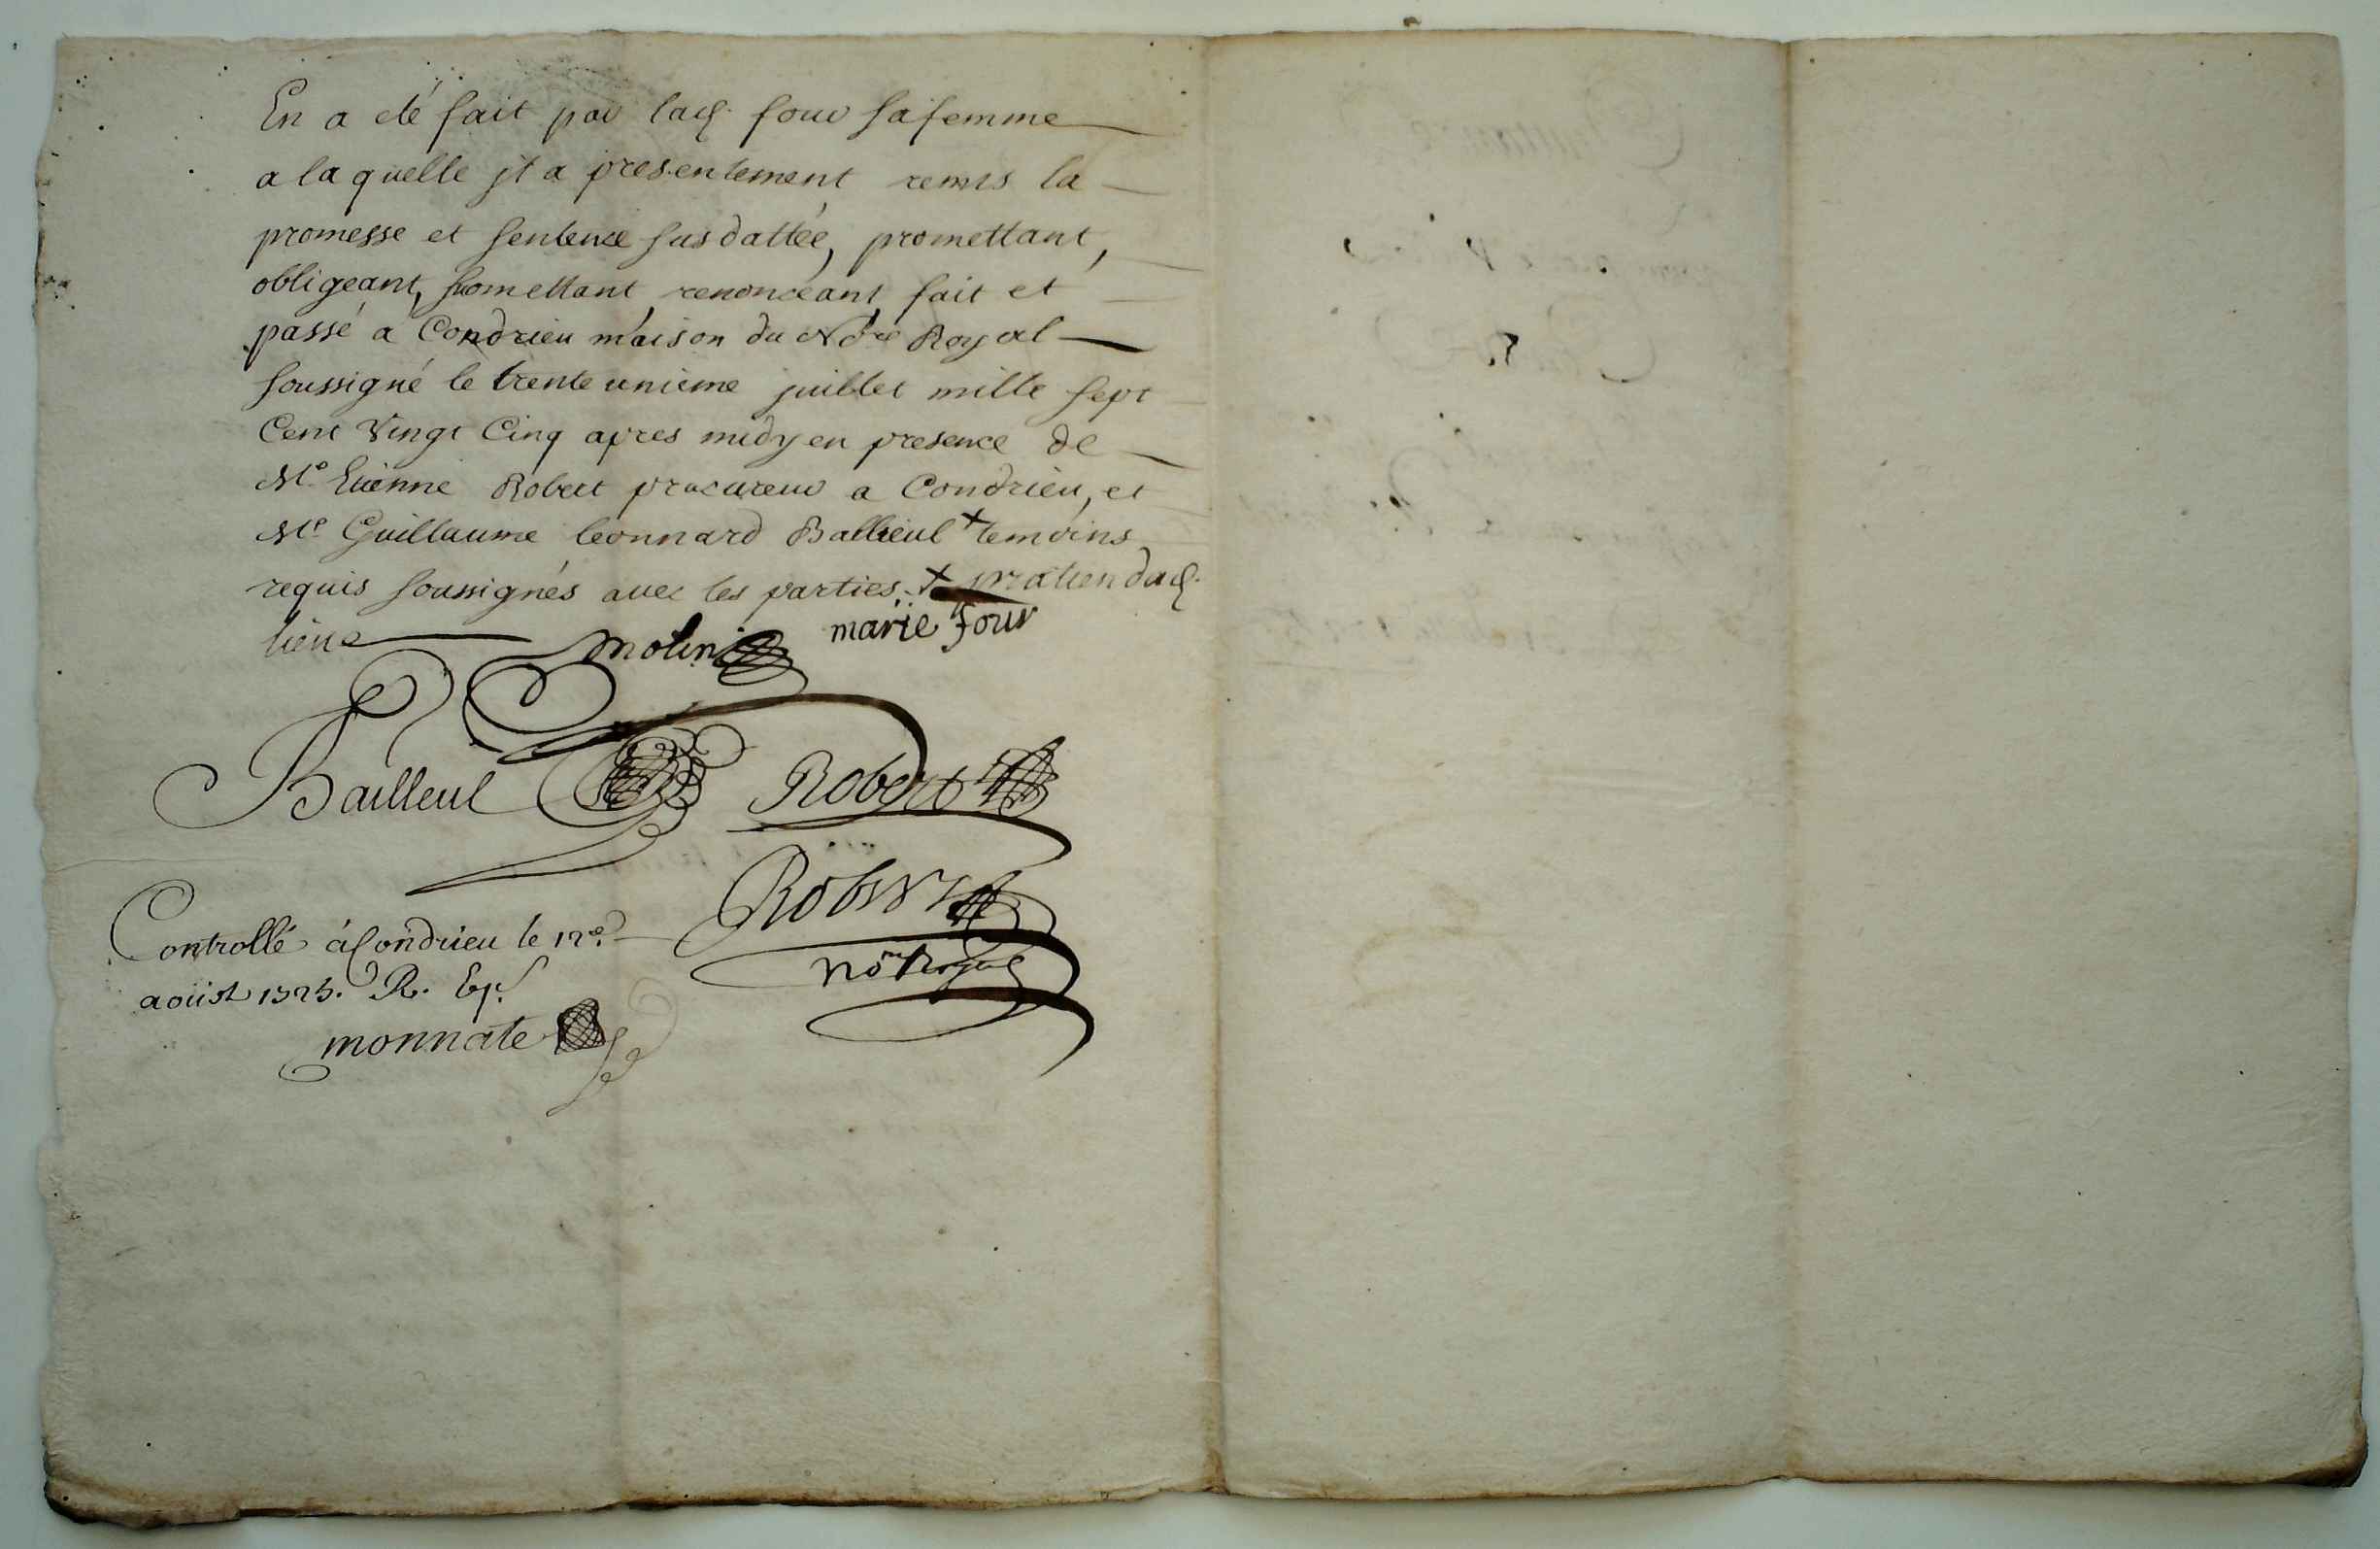 En a eté fait par lad. four sa femme
a laquelle jl a presentement remis la
promesse et sentence susdattée, promettant,
obligeant, soumettant renonceant, fait et
passé a Condrieu maison du No.re Royal
soussigné le trente unieme juillet mille sept
Cent Vingt Cinq apres midy en presence de
M.e Etienne Robert procureur a Condrieu, et
M.e Guillaume leonnard Ballieul + temoins
requis soussignés avec les parties. + praticien dud.
lieu
molin marie four
Bailleul Robert
Robert
no.re Royal
Controllé à Condrieu le 12e.
aoust 1725. R.
monnate